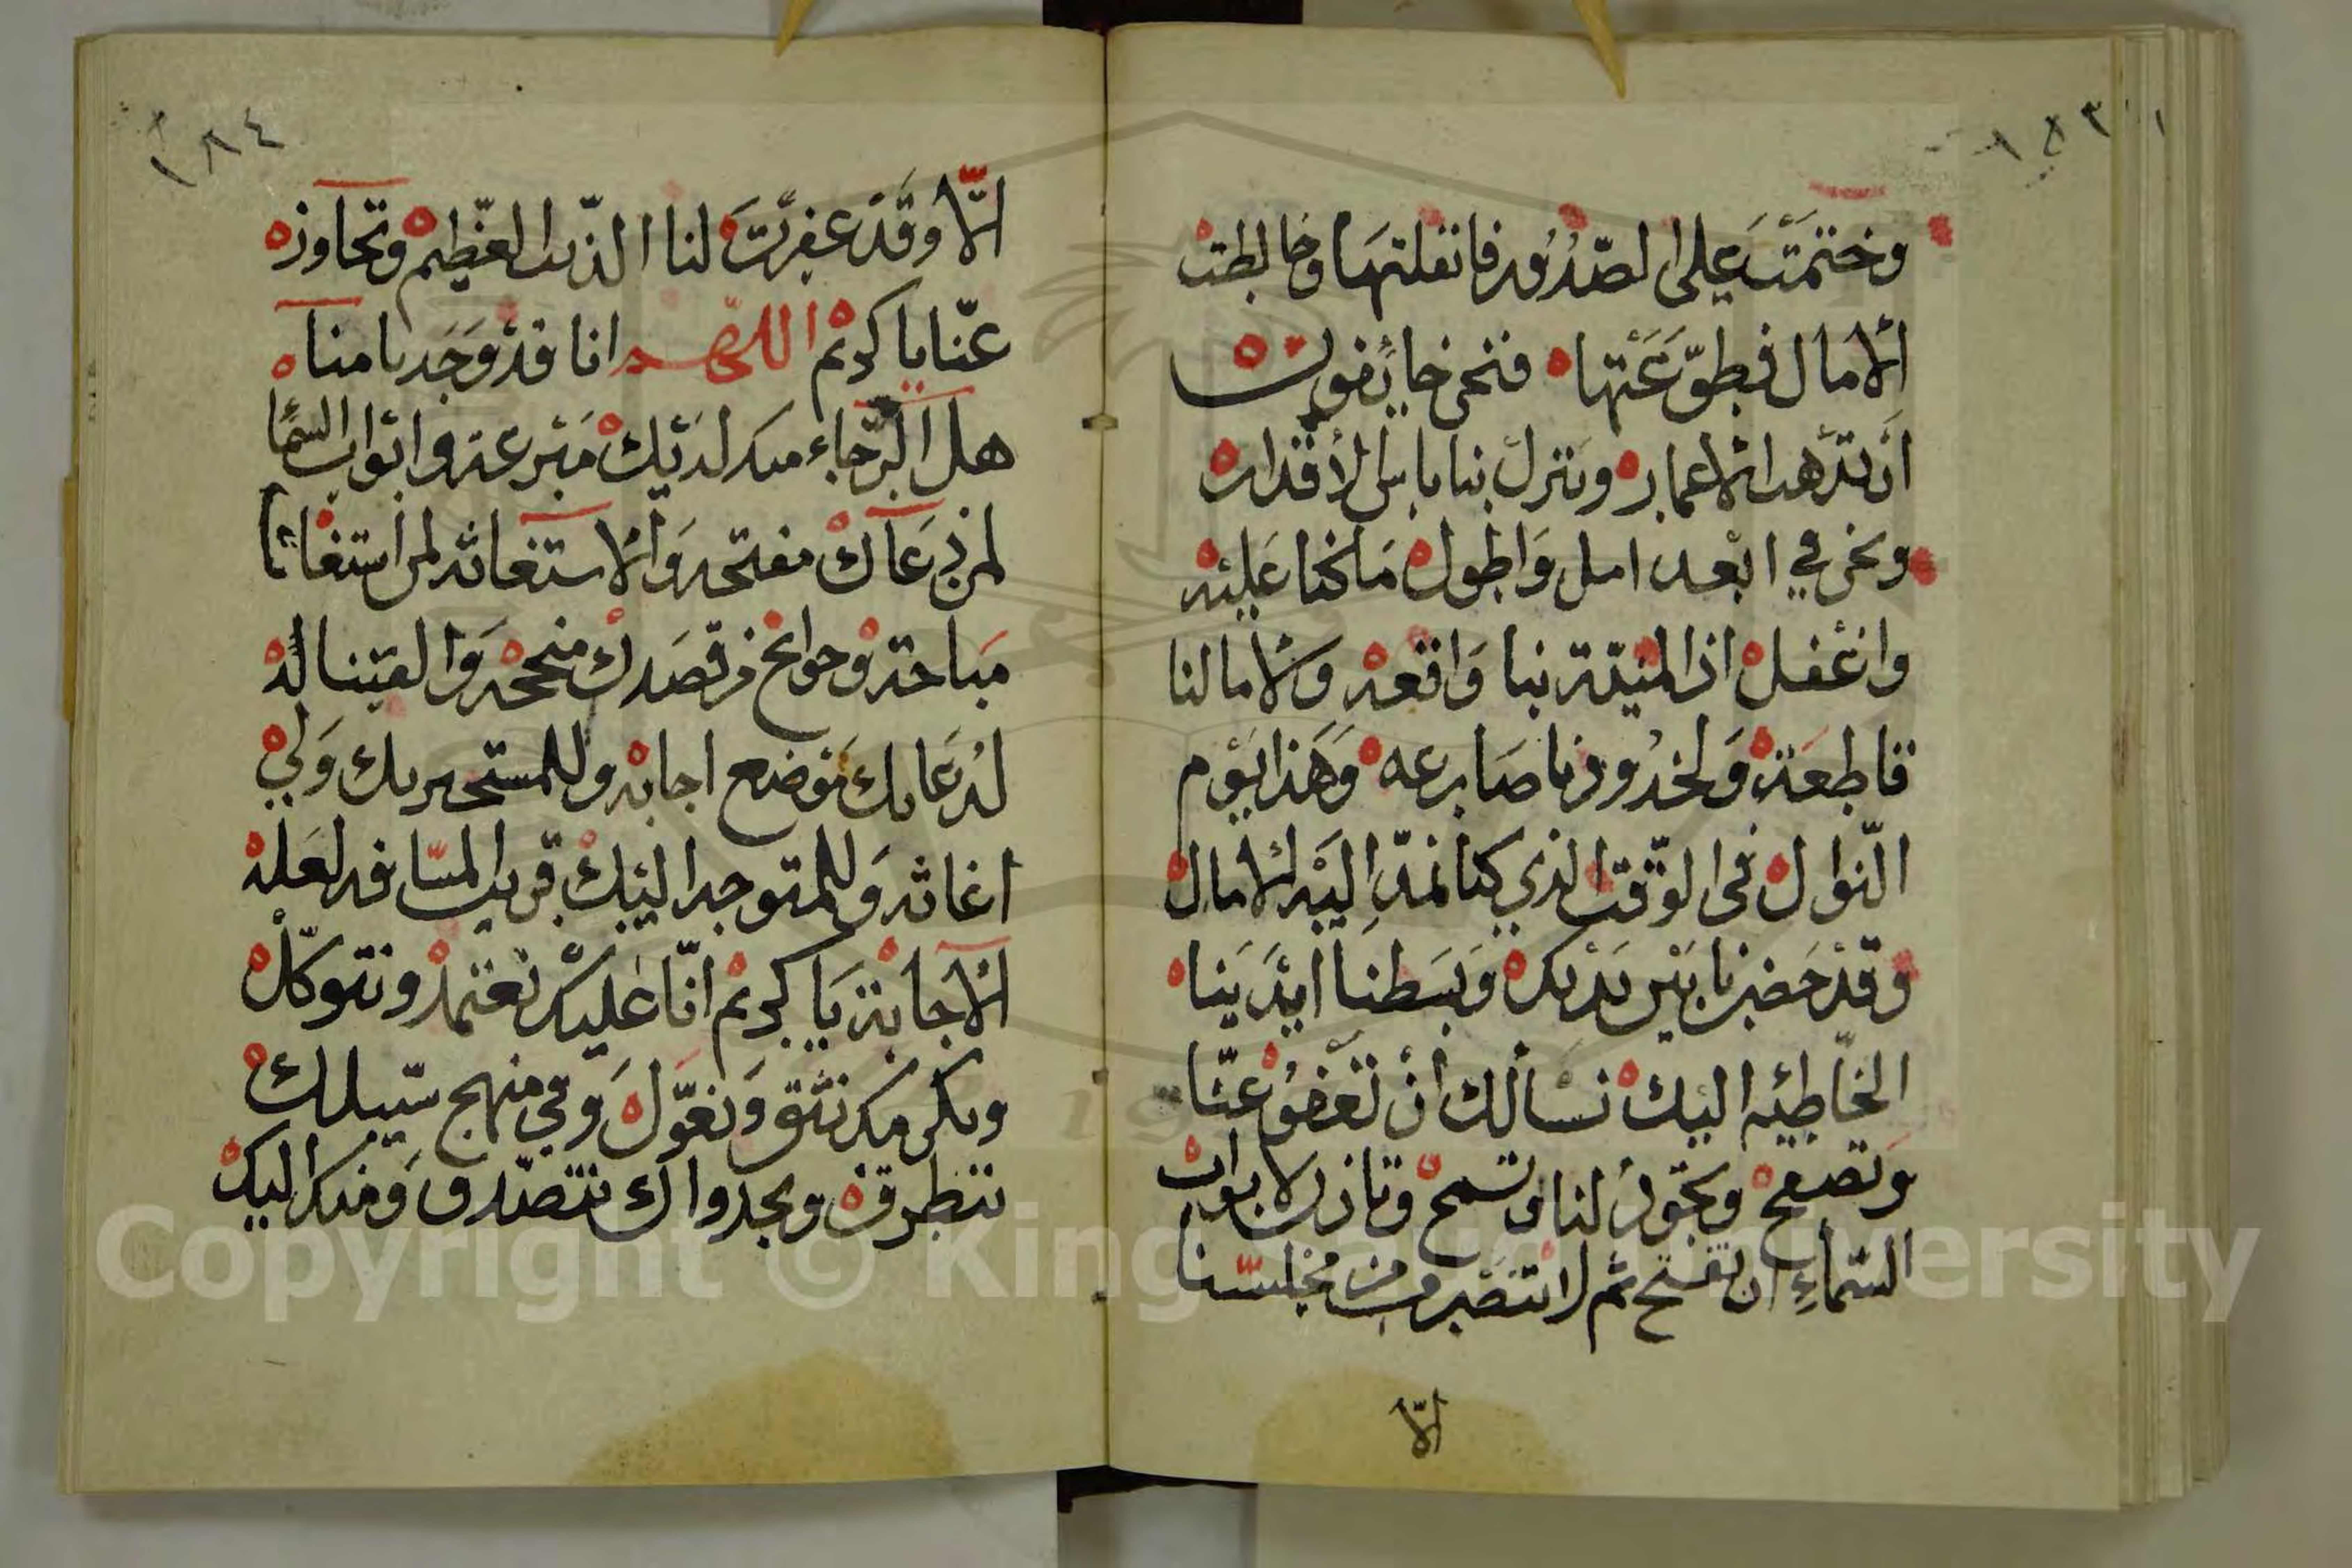 ١٨٣
وختمت على الصدور فاثقلتها وخالطت
الآمال فطوعتها فنحن خايفون
ان تذهب الاعمار وتنزل بنا باس الاقدار
ونحن في ابعد امل واطول ما كنا عليه
واغفل اذ المنية بنا واقعة ولآمالنا
قاطعة ولخدودنا صارعه وهذا يوم
النوال في الوقت الذي كنا نمد اليه الامال
وقد حضرنا بين يديك وبسطنا ايدينا
الخاطئيه اليك نسألك أن تعفو عنا
وتصفح وتجود لنا وتسمح وتاذن لابواب
السماء ان تفتح ثم لا ننصرف من مجلسنا
الّا
١٨٤
الّا وقد غفرت لنا الذنب العظيم وتجاوزه
عنّا يا كريم اللهم انا قد وجدنا منا
هل الرجاء منك لديك مترعة وابواب السما
لمن دعاك مفتحه والاستغاثه لمن استغاث
مباحة وحوائج من قصدك منجحه والفيناله
لدعائك موضع اجابه وللمستجير بك ولي
اغاثه وللمتوجه اليك قريب المسافه لعله
الاجابة يا كريم انّا عليك نعتمد ونتوكل
وبكرمك نثق ونعوّل وفي منهج سبيلك
نتطرق وبجدواك نتصدق ومنك اليك
Copyright © King Saud University